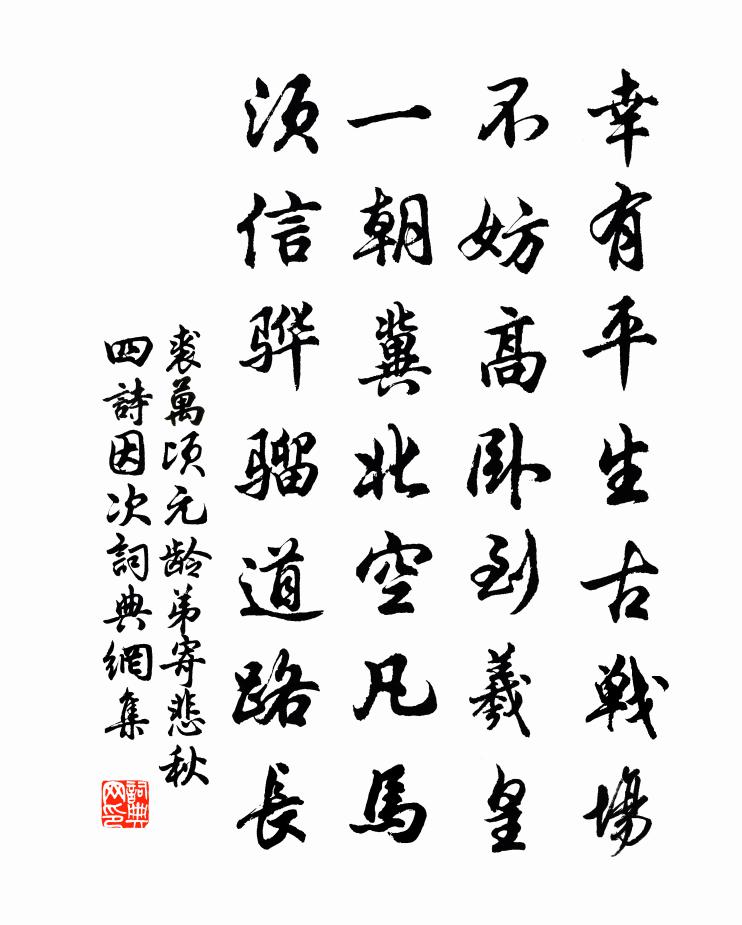 幸有平生古戰場
不妨高卧到羲皇
一朝冀北空凡馬
須信骅骝道路長
裘萬頃元龄弟寄悲秋
四詩因次詞典網集
詞典
网印